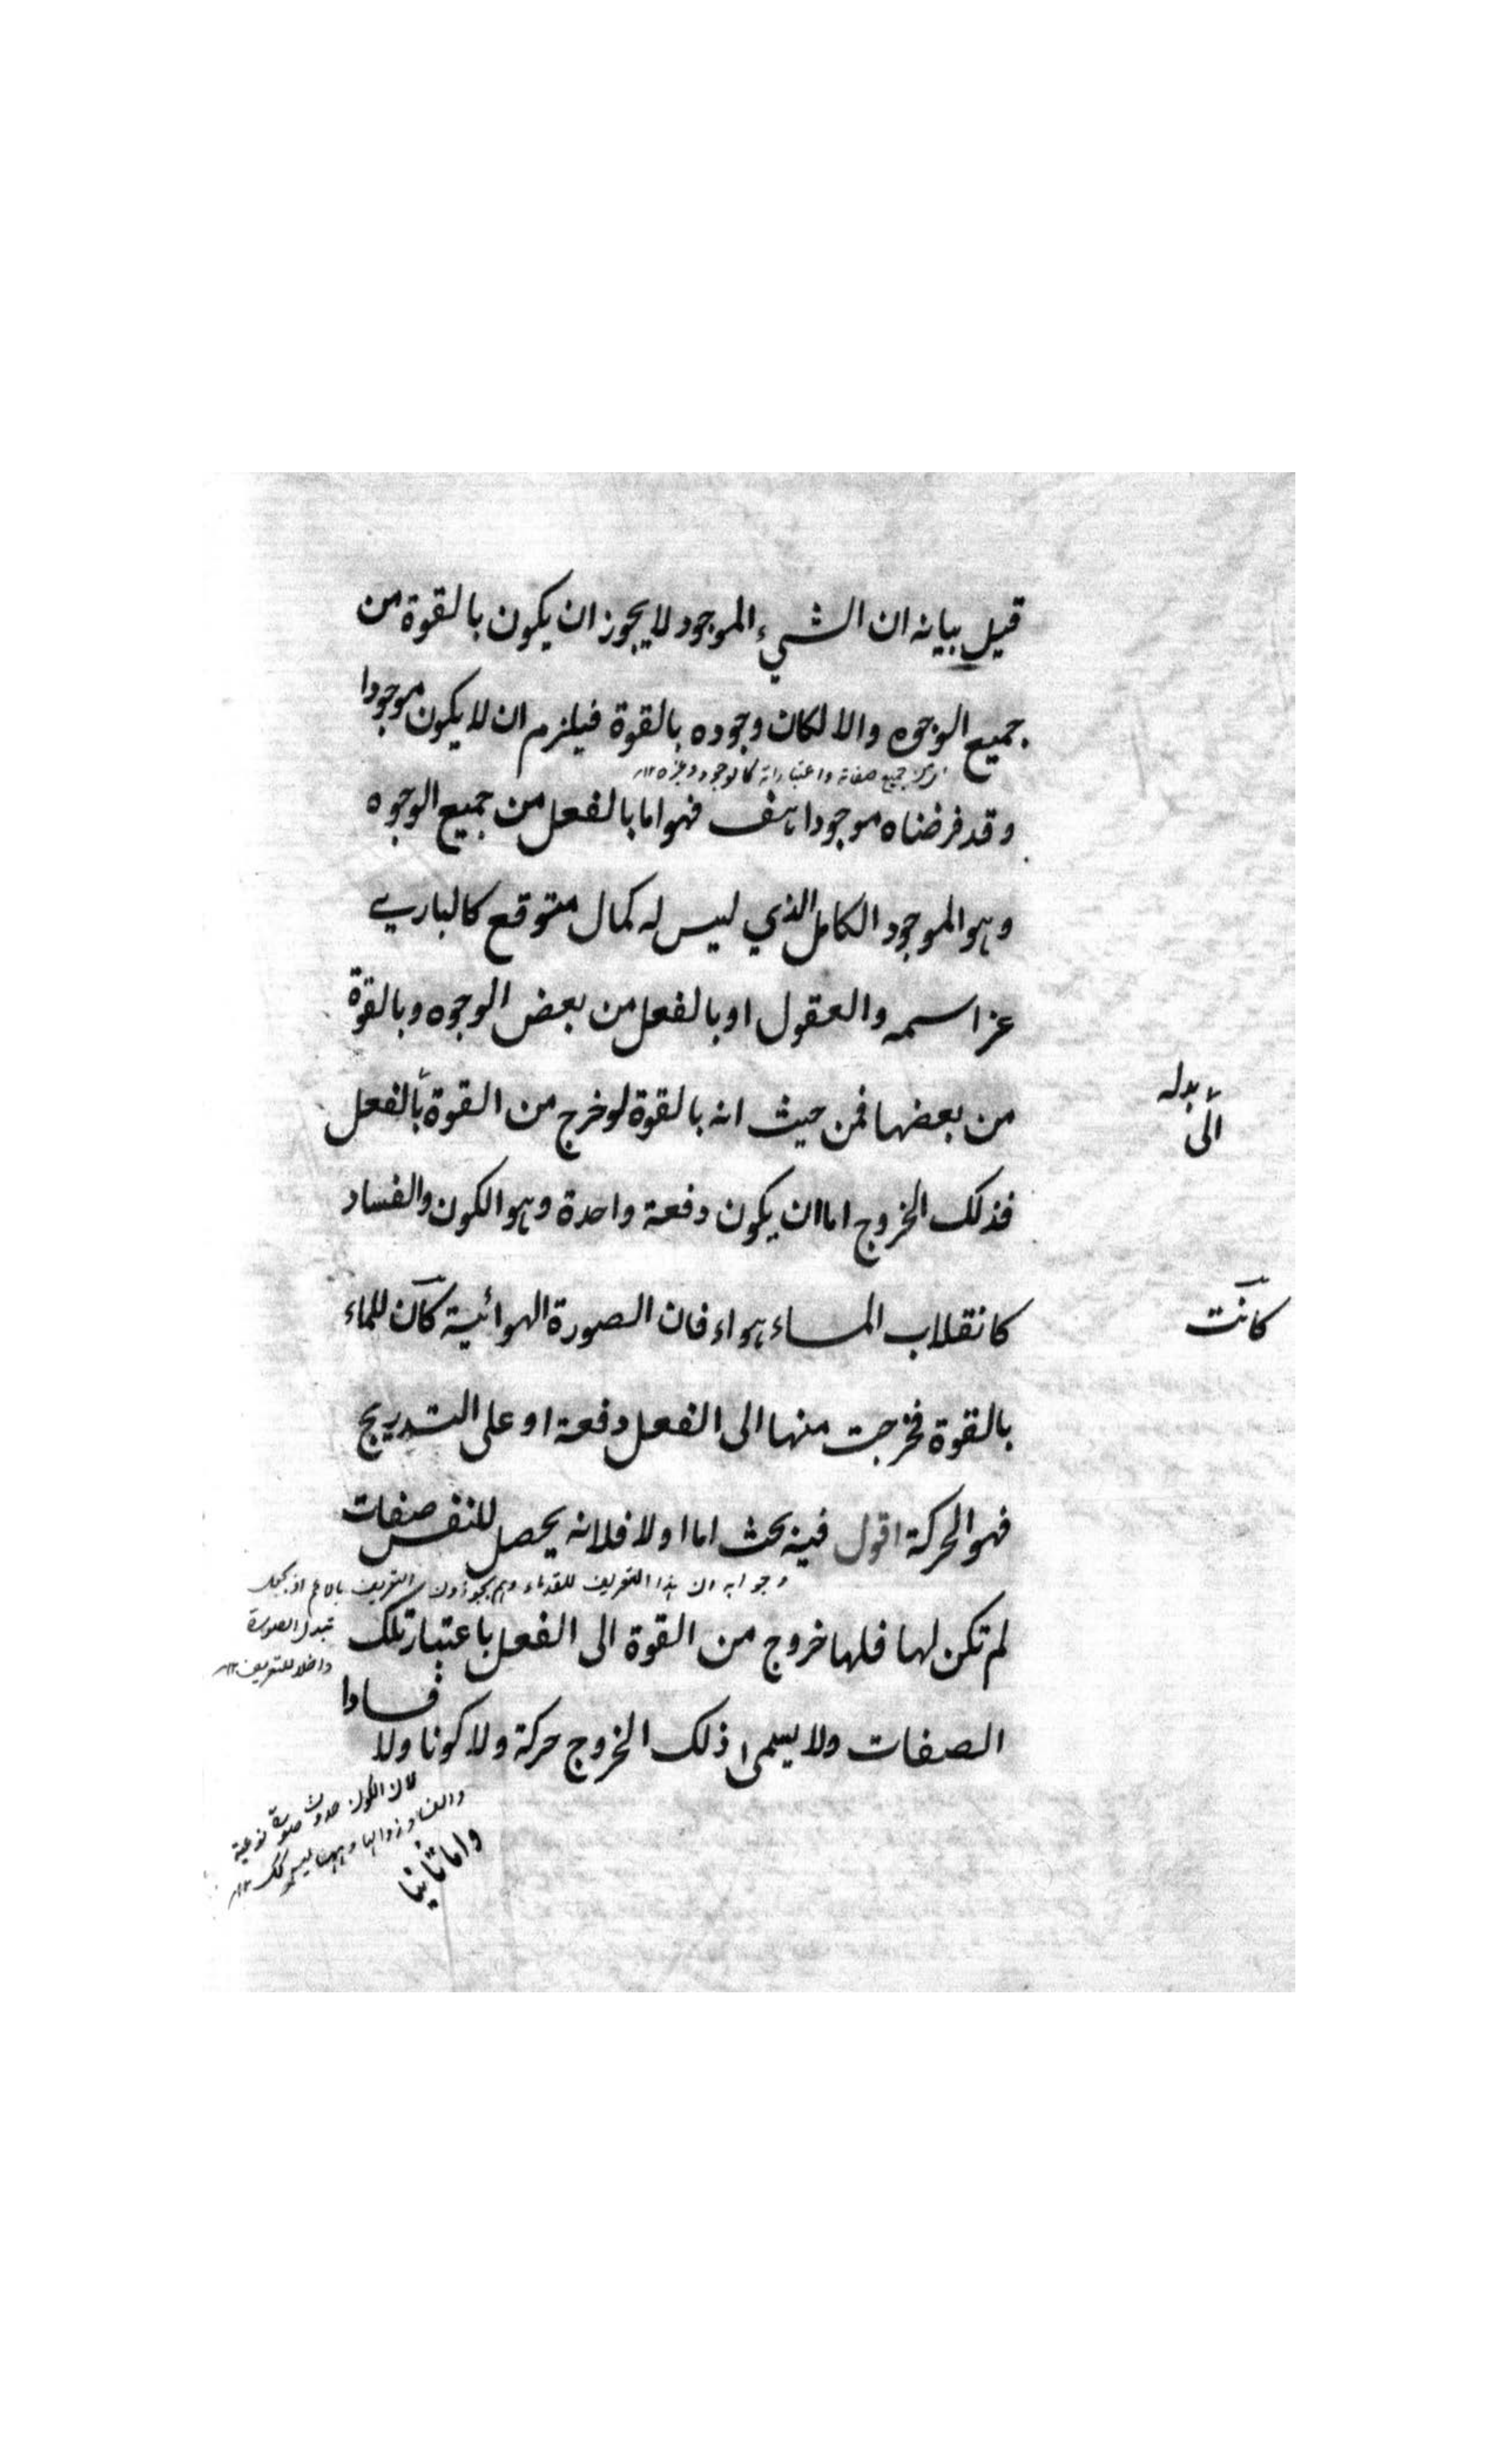 قيل بيانه ان الشيء الموجود لا يجوز ان يكون بالقوة من
جميع الوجوه والا لكان وجوده بالقوة فيلزم ان لا يكون موجودا
جميع صفاته واعتباراته كالوجود وغيره ١٢
وقد فرضناه موجودا هف فهو اما بالفعل من جميع الوجوه
وهو الموجود الكامل الذي ليس له كمال متوقع كالباري
عز اسمه والعقول او بالفعل من بعض الوجوه وبالقوة
من بعضها فمن حيث انه بالقوة لو خرج من القوة بالفعل
الى بدله
فذلك الخروج اما ان يكون دفعة واحدة وهو الكون والفساد
كانقلاب الماء هواء فان الصورة الهوائية كان للماء
كانت
بالقوة فخرجت منها الى الفعل دفعة او على التدريج
فهو الحركة اقول فيه بحث اما اولا فلانه يحصل للنفس صفات
وجوابه ان هذا التعريف للقدماء وهم يجوزون التعريف بالاعم
تبدل الصورة
داخلا للتعريف ١٢
لم تكن لها فلها خروج من القوة الى الفعل باعتبار تلك
الصفات ولا يسمى ذلك الخروج حركة ولا كونا ولا فسادا
لان الكون حدوث صورة نوعية
والفساد زوالها وههنا ليس كك ١٢
واما ثانيا